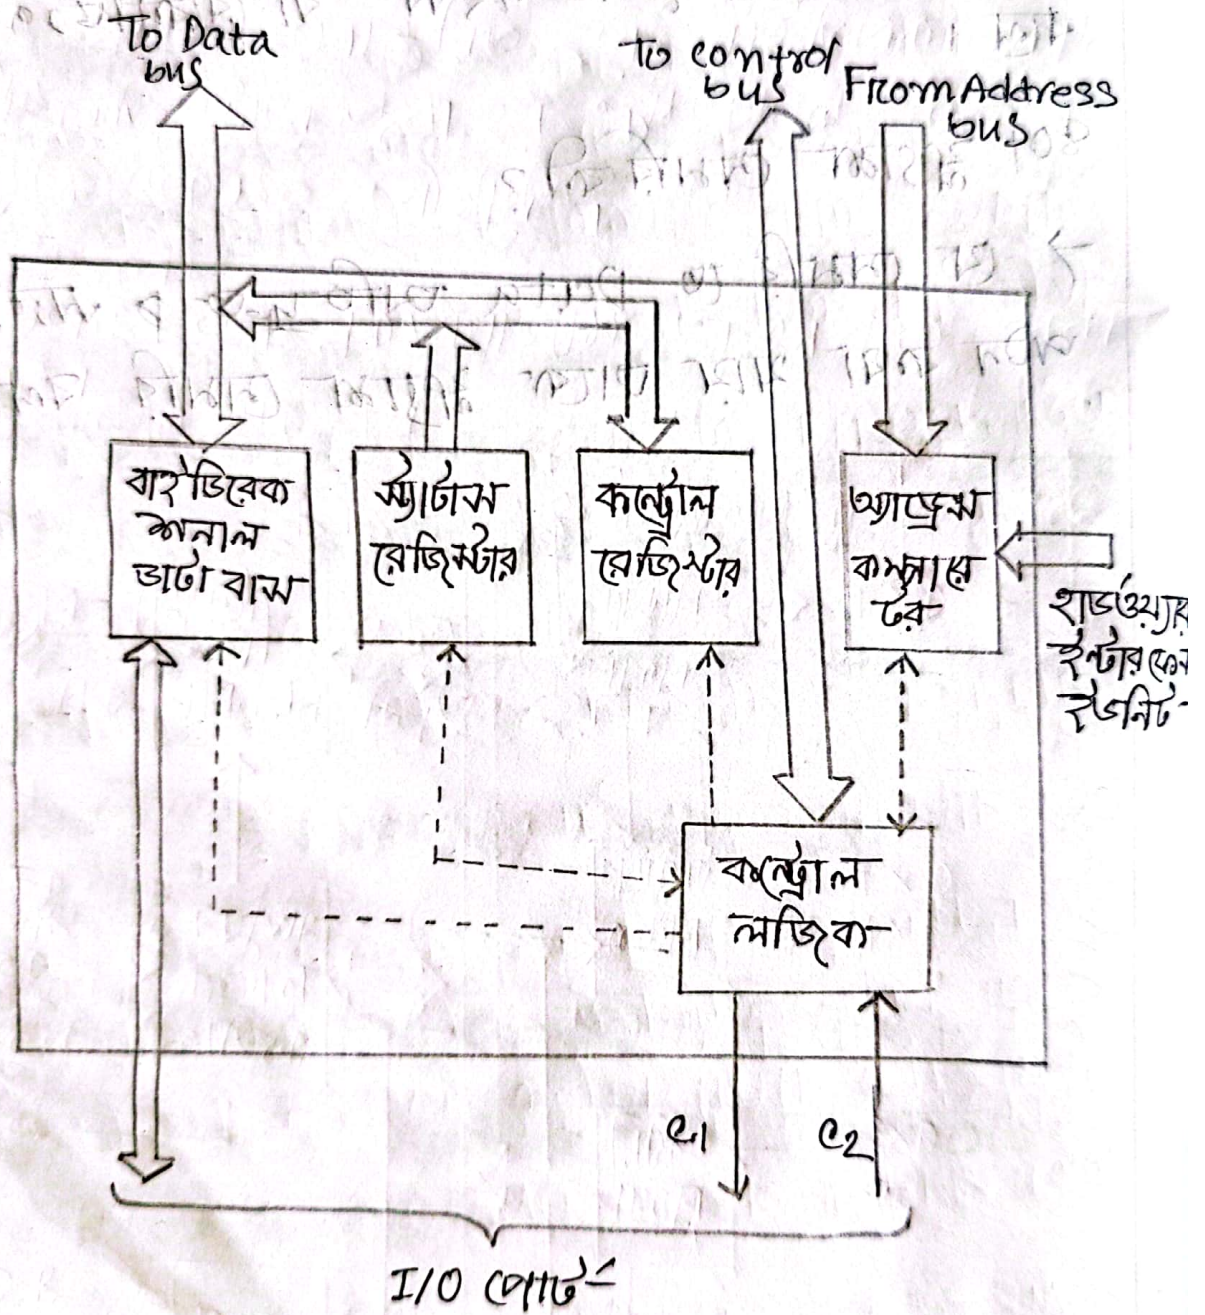 To Data
bus
To control
bus
From Address
bus
বাইডিরেক
শনাল
ডাটা বাস
স্ট্যাটাস
রেজিস্টার
কন্ট্রোল
রেজিস্টার
অ্যাড্রেস
কম্পারে
টর
হার্ডওয়্যার
ইন্টারফেস
ইউনিট
কন্ট্রোল
লজিক
C1
C2
I/O পোর্ট